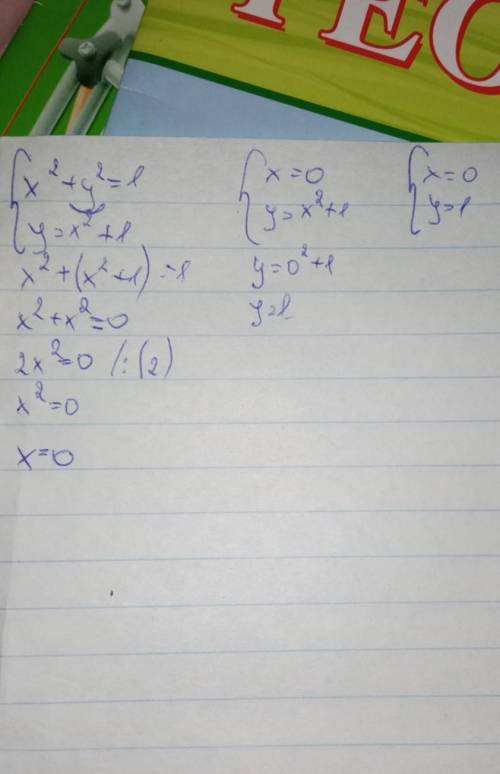 ГЕО
{ x² + y² = 1
{ y = x² + 1
x² + (x² + 1) = 1
x² + x² = 0
2x² = 0 /:(2)
x² = 0
x = 0
{ x = 0
{ y = x² + 1
y = 0² + 1
y = 1
{ x = 0
{ y = 1